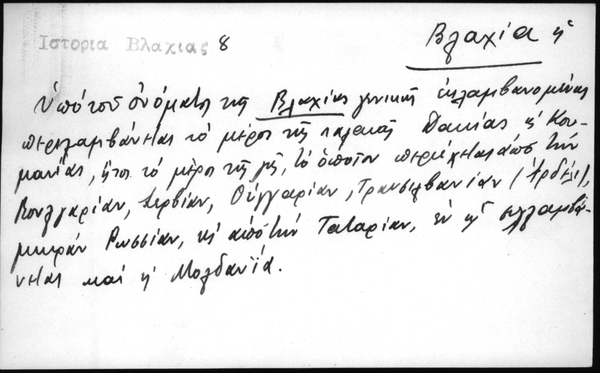 Ιστορια Βλαχιας 8
Βλαχία ἡ
Ὑπό τοῦ ὀνόματος τῆς Βλαχίας γενικῶς ἐκλαμβανομένης
περιλαμβάνεται τό μέρος τῆς παλαιᾶς Δακίας ἤ Κου-
μανίας, ἤτοι τό μέρος τῆς γῆς, τό ὁποῖον περιέχεται ἀπό τήν
Βουλγαρίαν, Σερβίαν, Οὑγγαρίαν, Τρανσυλβανίαν (Ἀρδέλι),
μικράν Ρωσσίαν, κ' ἀπό τήν Ταταρίαν, ἐν ᾗ συλλαμβά-
νεται καί ἡ Μολδαυΐα.